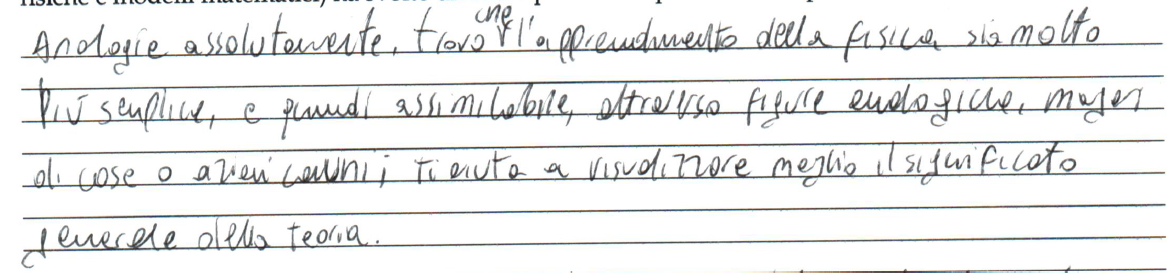 Analogie assolutamente, trovo che l'apprendimento della fisica sia molto
più semplice, e quindi assimilabile, attraverso figure analogiche, magari
di cose o azioni comuni; ti aiuta a visualizzare meglio il significato
generale della teoria.